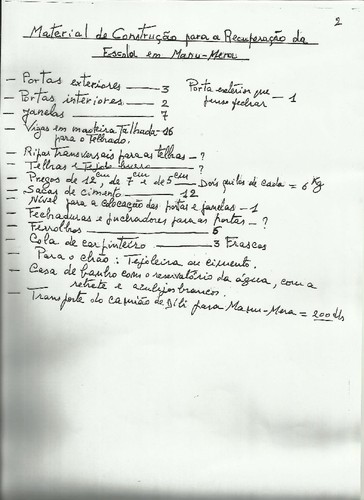 2
Material de Construção para a Recuperação da
Escola em Manu-Mera
— Portas exteriores — 3 Porta exterior que
— Portas interiores — 2 fechar — 1
— Janelas — 7
— Vigas em madeira talhada - 16
para o telhado.
— Ripas transversais para as telhas - ?
— Telhas — ?
— Pregos de 12 cm, de 7 cm e de 5 cm — Dois quilos de cada = 6 Kg
— Sacas de cimento — 12
— Nível para a colocação das portas e janelas - 1
— Fechaduras e puchadores para as portas - ?
— Ferrolhos — 5
— Cola de carpinteiro — 3 Frascos
— Para o chão: Tijoleira ou cimento.
— Casa de banho com o reservatório da água, com a
retrete e azulejos brancos.
— Transporte do camião de Díli para Manu-Mera = 200